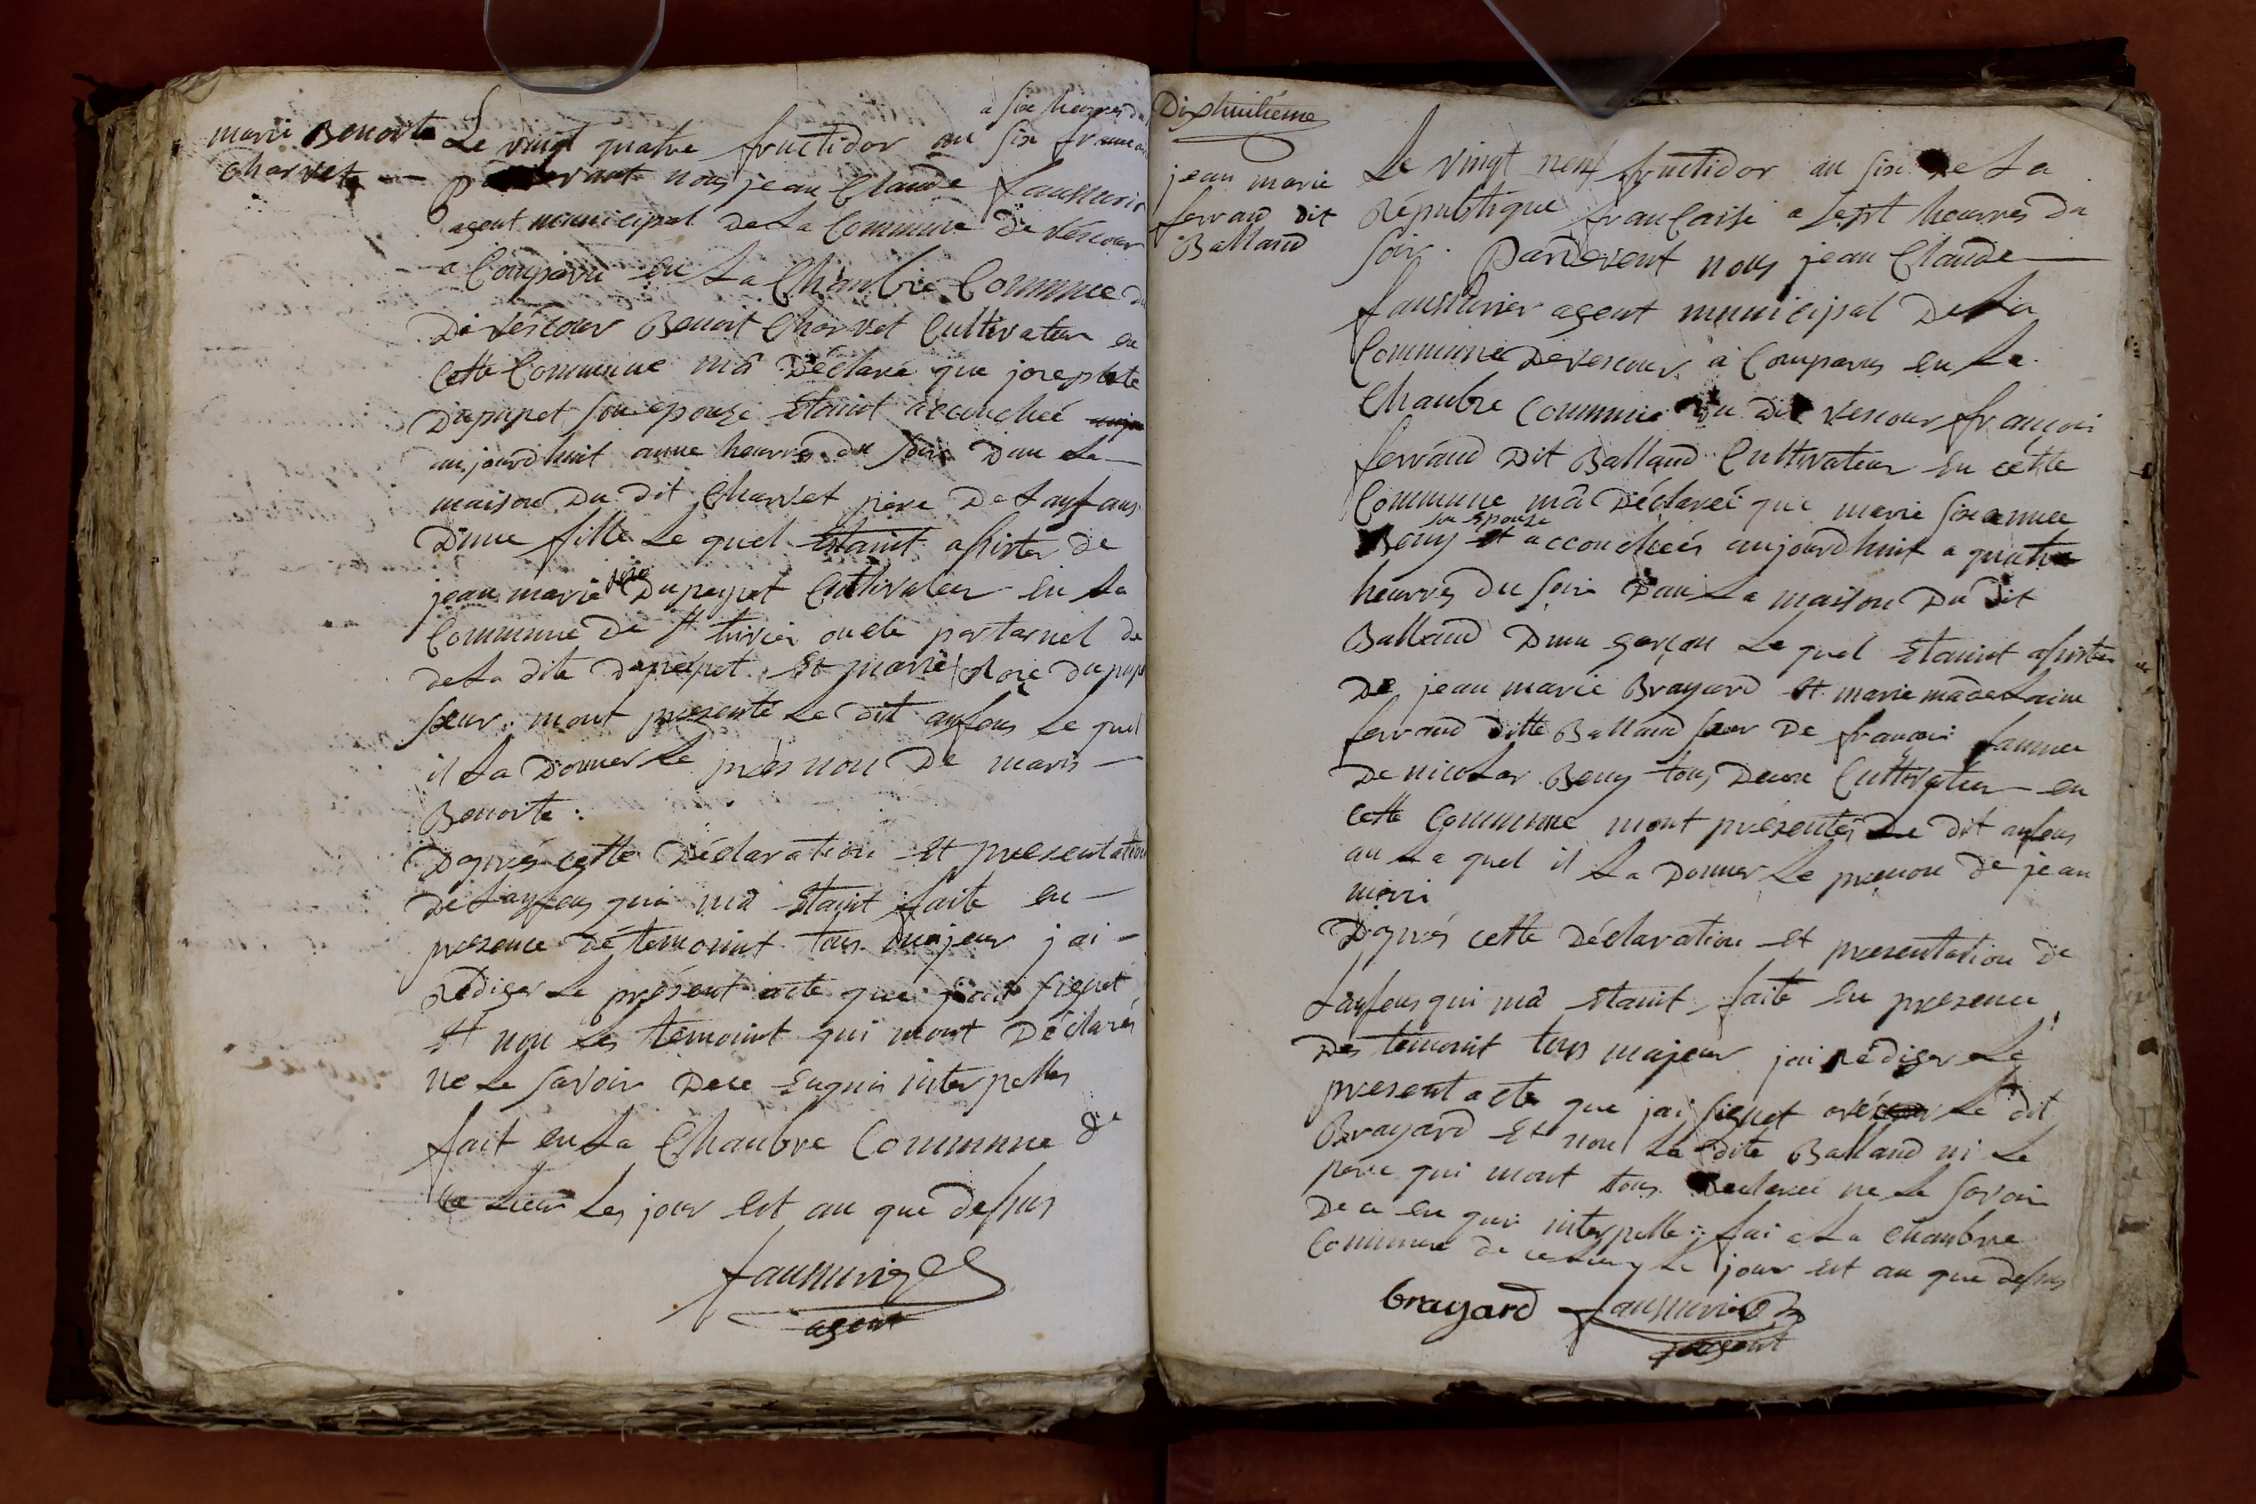 marie Benorte
Charvet
a six heures du
Le vingt quatre fructidor an six
nous jean Claude faussurier
agent municipal de La Commune de vescour
a Comparu en La Chambre Commune du
Di vescour Benoit Charvet Cultivateur en
Cette Commune mâ Déclaré que josepte
Dupupet son epouze etaint accouchéé
aujourdhuit onne heurres du soire Dan La
maison Du dit Charvet père De Lanfans
Dune fille Le quel Etaint assister de
jean marie Dupupet Cultivateur en La
Commune De St trivier oncle parternel de
de La dite Dupupet Et marie
soeur mont presenté Le dit anfens Le quel
il La Donner Le près non De marie
Benorte :
Dapprés cette Déclaration Et presentation
De Lanfens qui mâ Etaint faite en
presence dé temoint tous majeur jai
Rédiger Le présent acte que jait signet
Et non Les temoint qui mont Déclarés
ne Le savoir Dece Enquis interpelles
fait en La Chambre Commune de
ce Lieux Les jour Est an que dessus
faussurier
agent
Dixhuitiême
jean marie
ferrand dit
Balland
Le vingt neuf fructidor an six de La
République francaise a sept heurres du
soir. Pardevent nous jean Claude
faussurier agent municipal De La
Commune De vescour à Comparus en La
Chambre Commune du dit vescour françois
ferrand Dit Balland Cultivateur en cétte
Commune mâ Déclareé que marie susanne
sa Epouze
Beny Et accouchéés aujourdhuit a quatre
heurrés du soire Dan La maison Du dit
Balland Dun garçon Le quel Etaint assister
De jean marie Brayard Et marie madelaine
ferrand ditte Balland soeur De françois
De nicolas Beny tous Deux Cultivateur en
cette Commune mont présentés Le dit anfens
au La quel il La Donner Le prenon de jean
marie
Dapprés cette Déclaration Et presentation de
Lanfens qui mâ Etaint faite en presence
Des témoint tous majeur jai Rédiger Le
present acte que jai signet avéc Le dit
Brayard Et non La dite Balland ni Le
pere qui mont tous Déclareé ne Le savoir
De ce en quis interpelle ; fai a La Chambre
Commune de ce Lieux Le jour Est an que dessus
brayard faussurier
agent